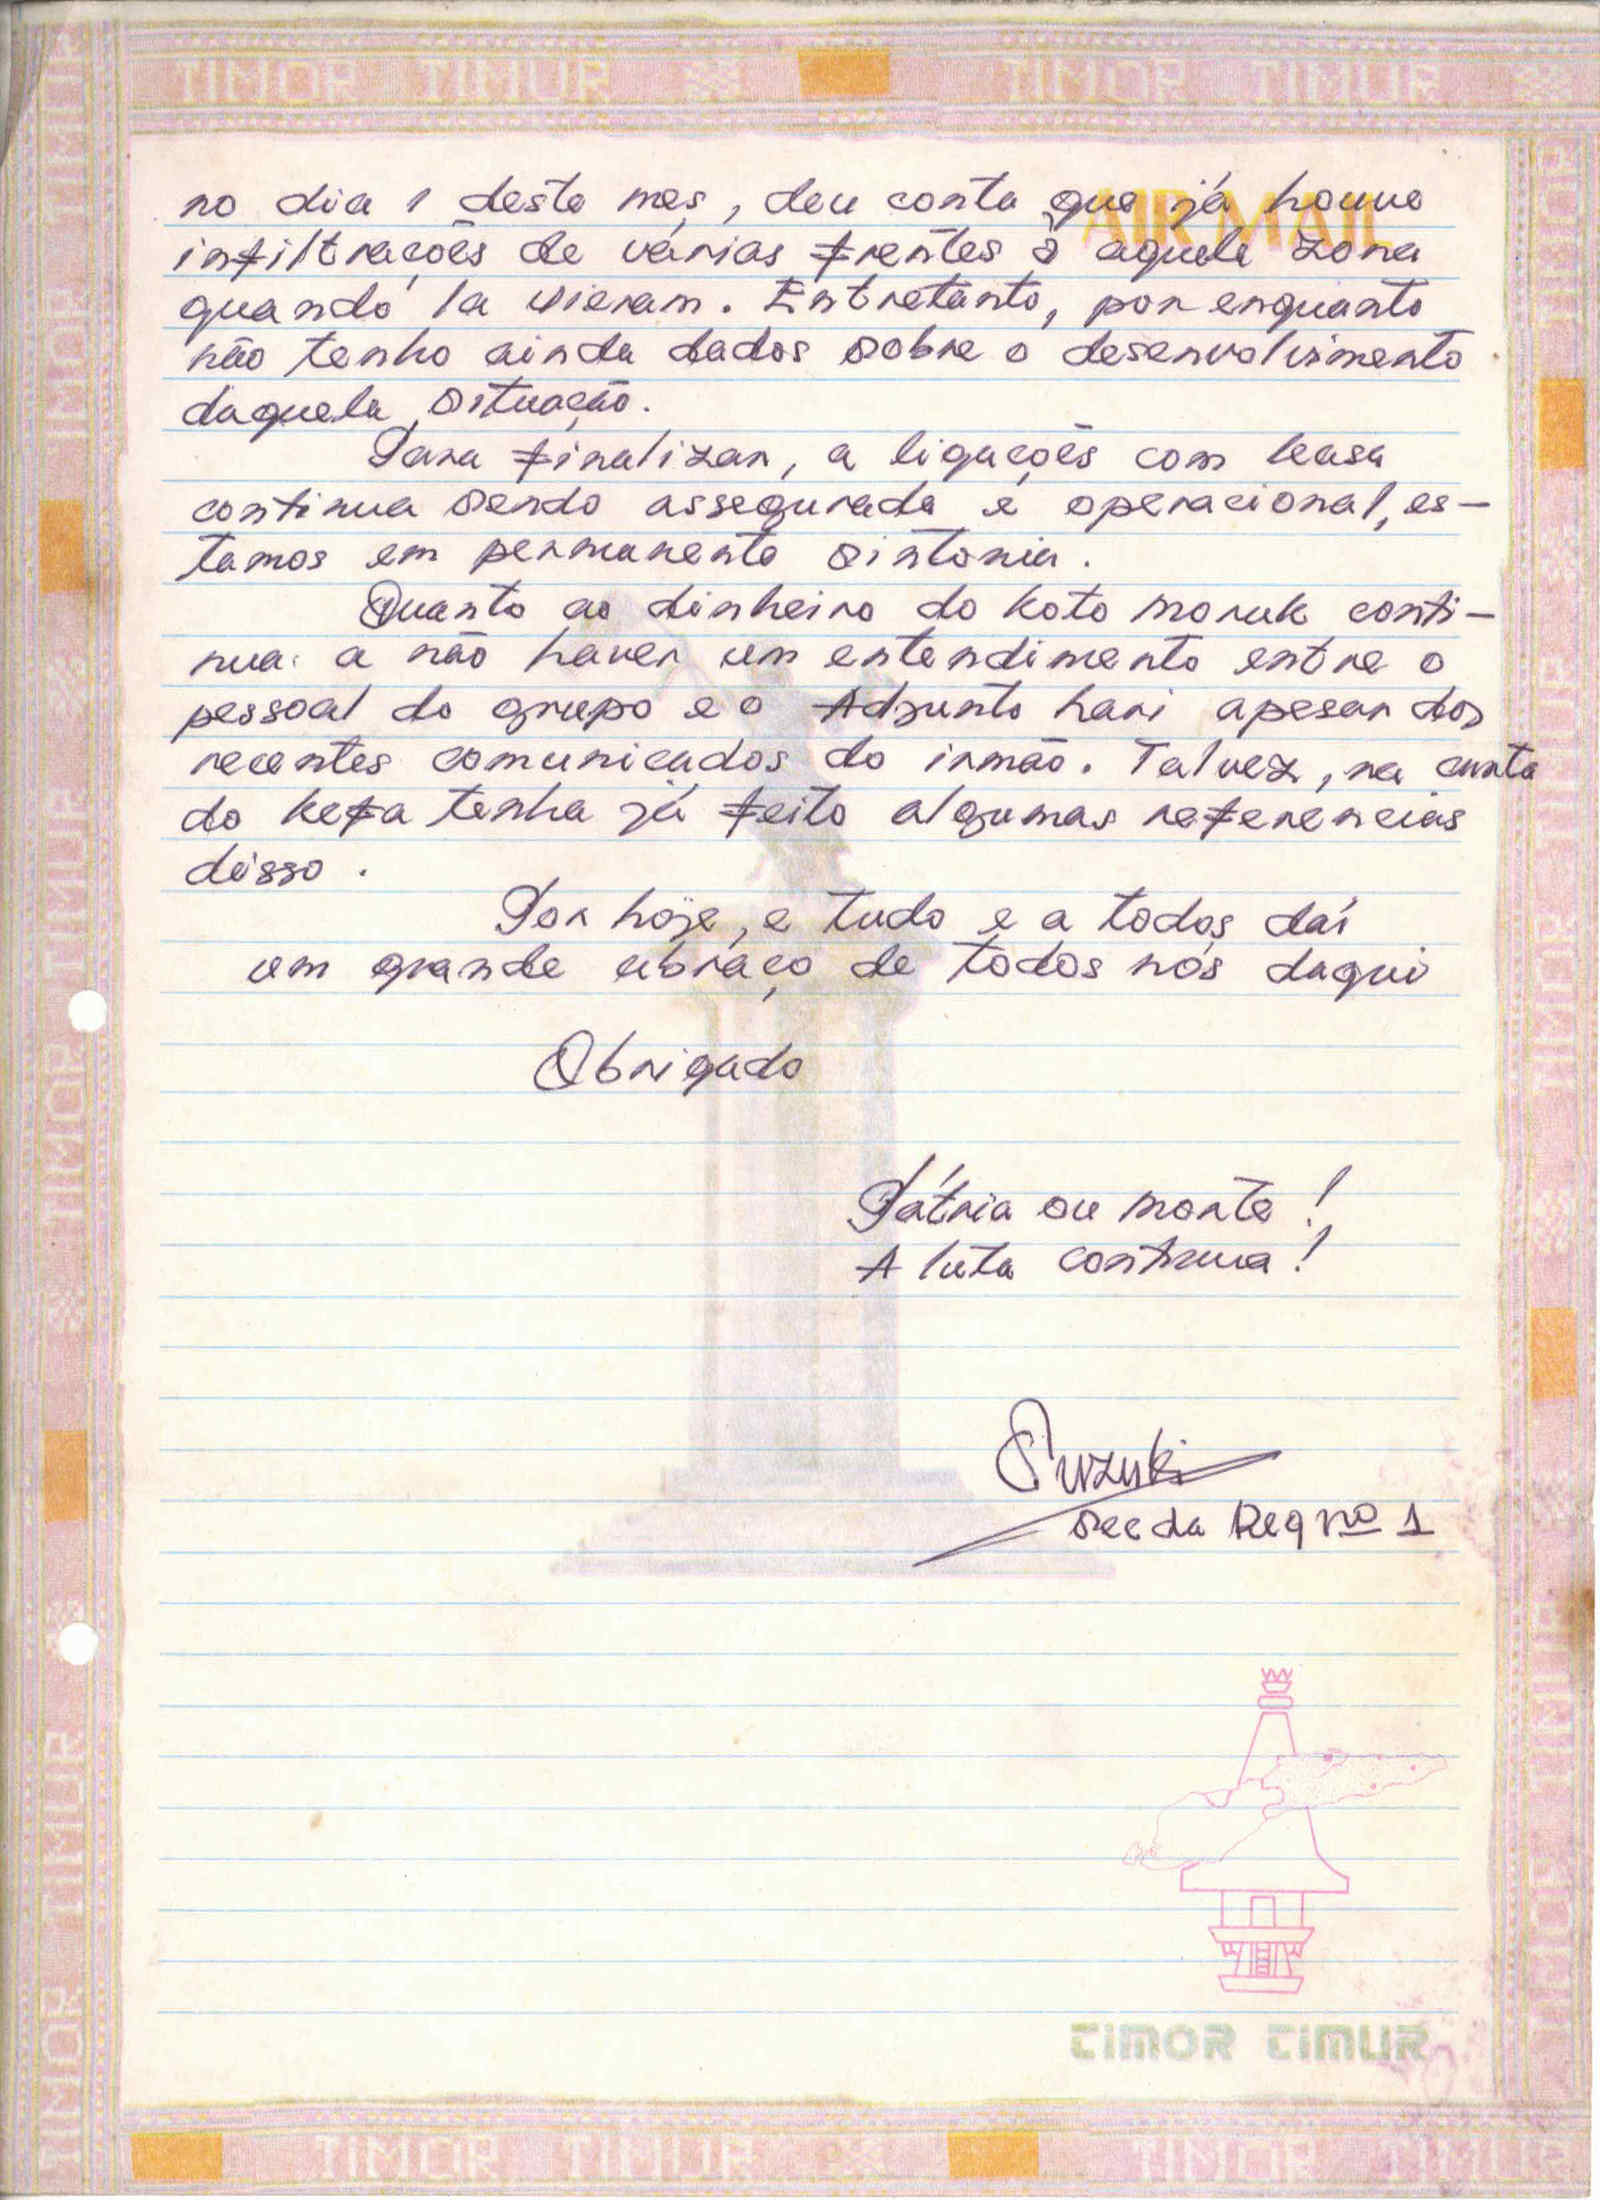 TIMOR TIMUR TIMOR TIMUR
AIR MAIL
no dia 1 deste mes, deu conta que já houve
infiltrações de várias frentes à aquela zona
quando la vieram. Entretanto, por enquanto
não tenho ainda dados sobre o desenvolvimento
daquela situação.
Para finalizar, a ligações com leasa
continua sendo assegurada e operacional, es-
tamos em permanente sintonia.
Quanto ao dinheiro do koto moruk conti-
nua a não haver um entendimento entre o
pessoal do grupo e o Adjunto hari apesar dos
recentes comunicados do irmão. Talvez, na carta
do kefa tenha já feito algumas referencias
disso.
Por hoje, e tudo e a todos daí
um grande abraço de todos nós daqui
Obrigado
Pátria ou morte!
A luta continua!
Suzuki
Sec da Reg nº 1
TIMOR TIMUR
TIMOR TIMUR TIMOR TIMUR